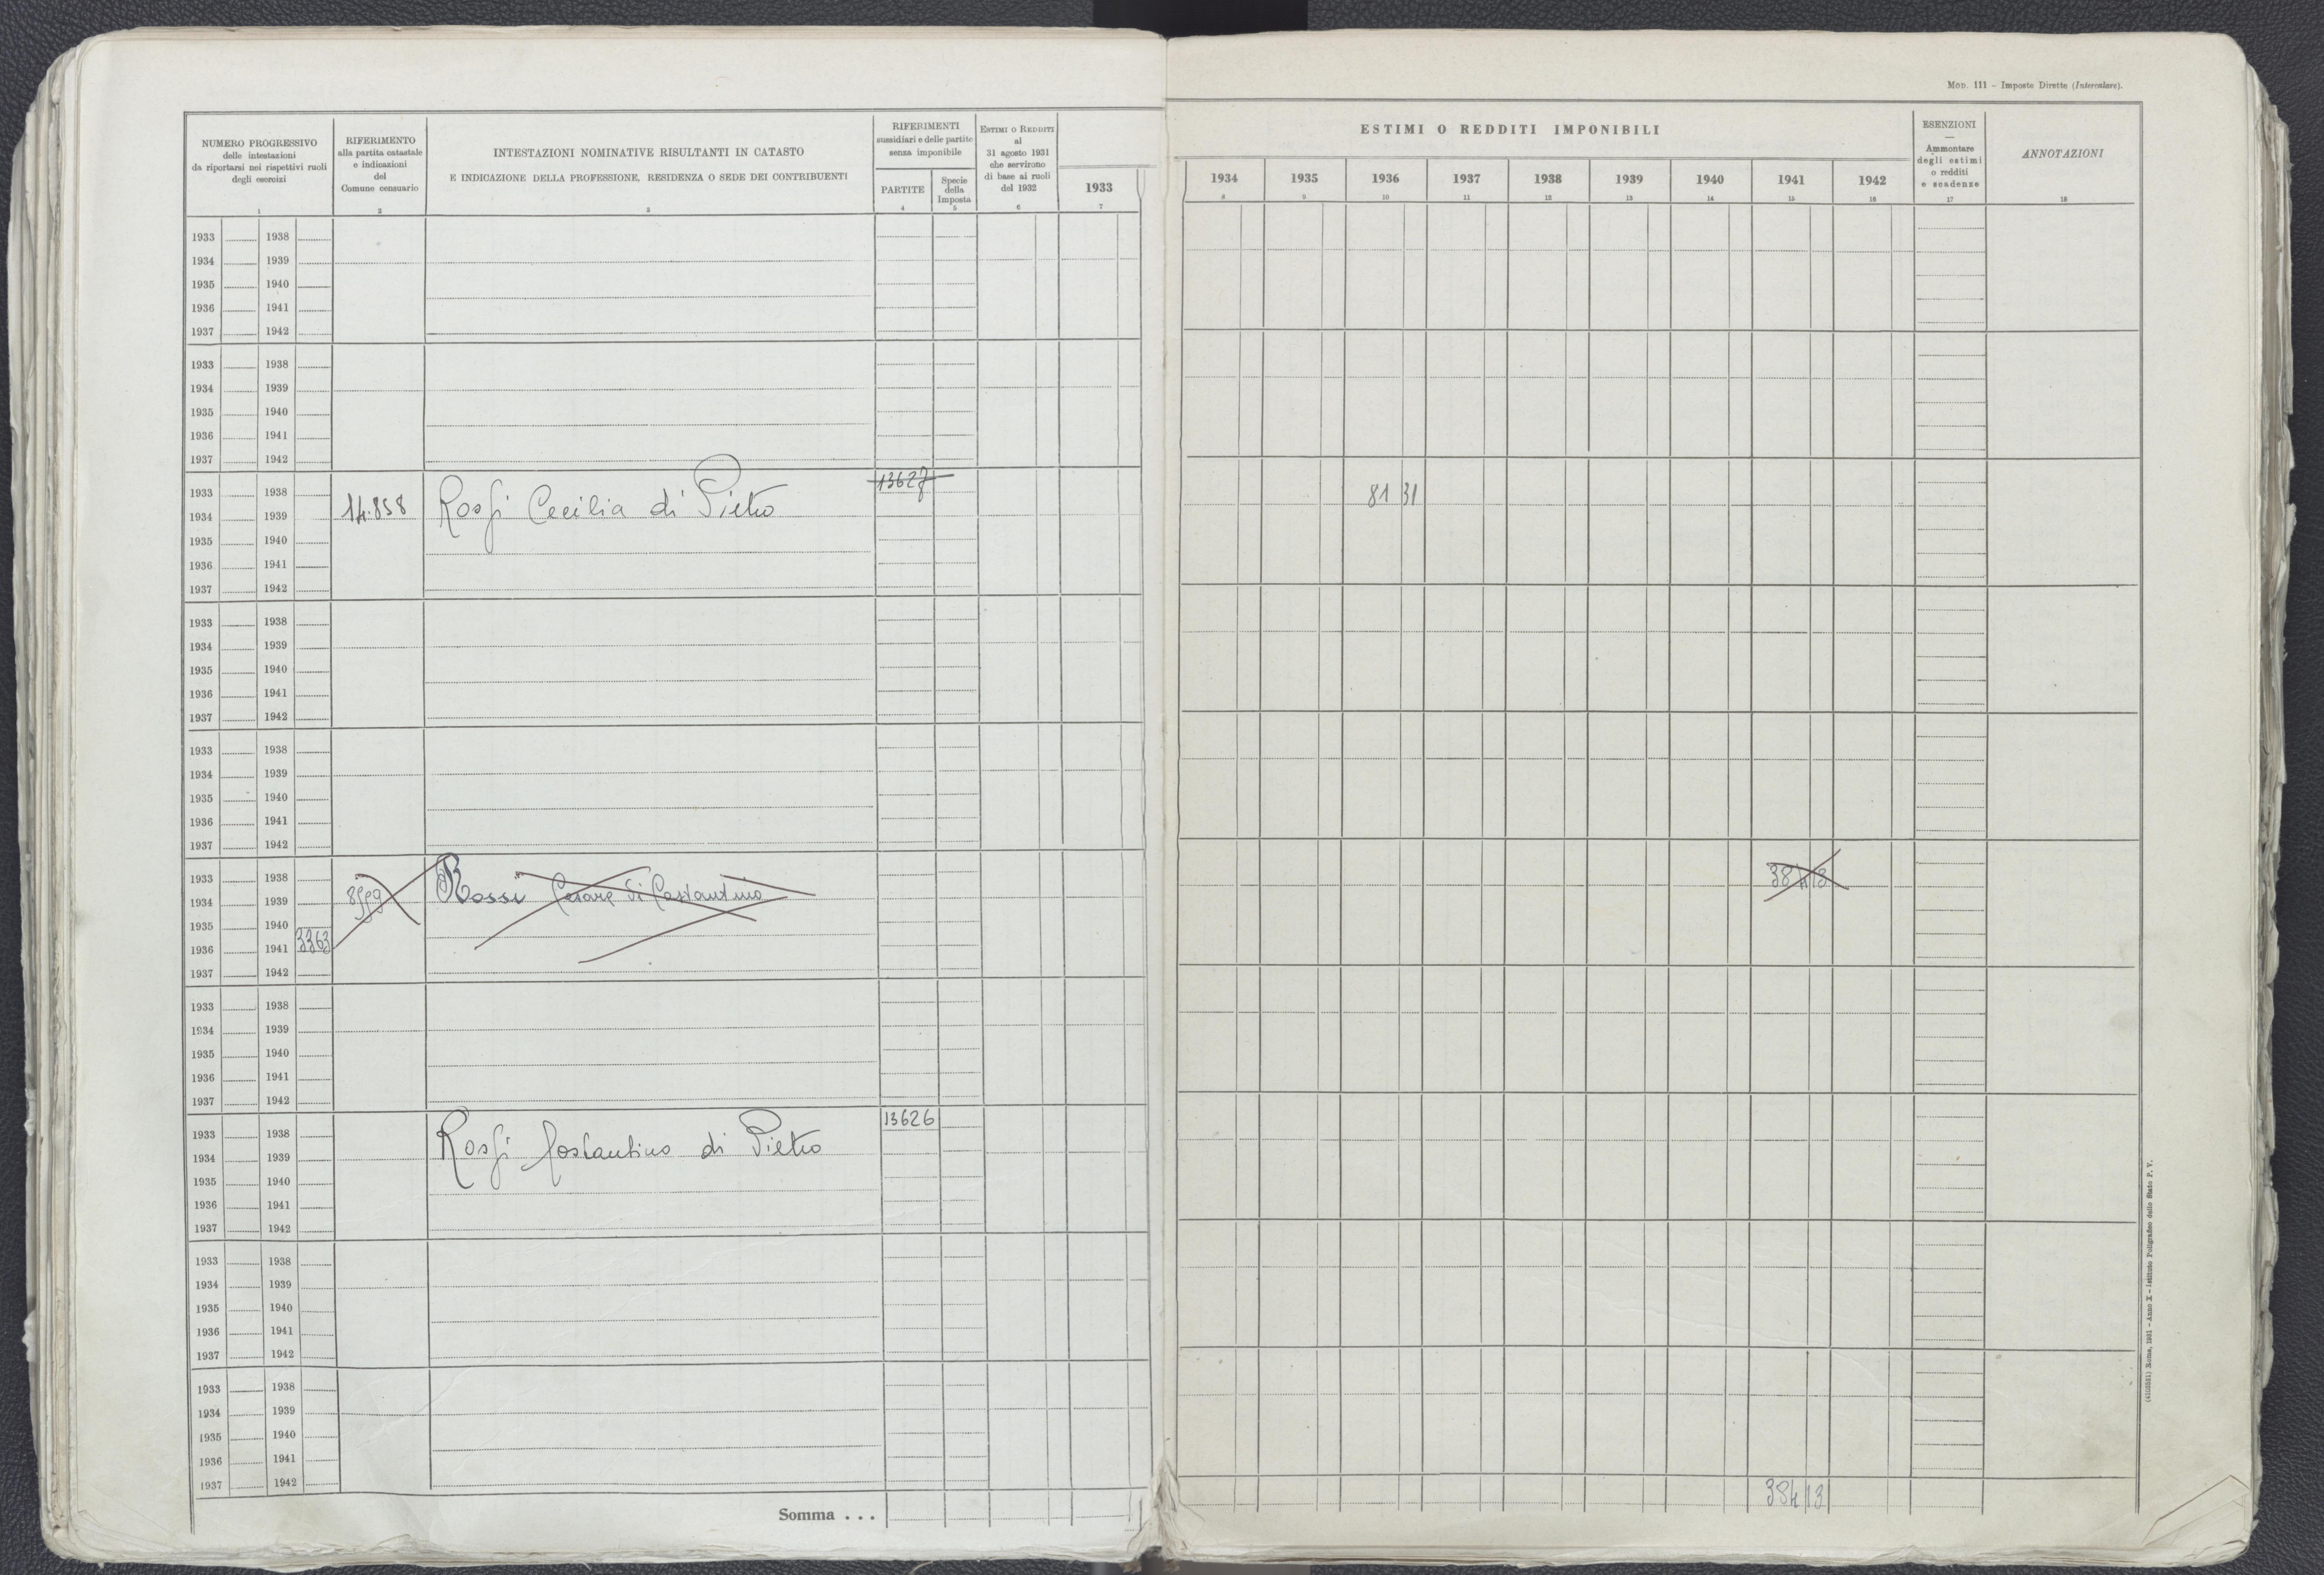 MOD. 111 - Imposte Dirette (Intercalare).
NUMERO PROGRESSIVO
delle intestazioni
da riportarsi nei rispettivi ruoli
degli esercizi
1
RIFERIMENTO
alla partita catastale
e indicazioni
del
Comune censuario
2
INTESTAZIONI NOMINATIVE RISULTANTI IN CATASTO
E INDICAZIONE DELLA PROFESSIONE, RESIDENZA O SEDE DEI CONTRIBUENTI
3
RIFERIMENTI
sussidiari e delle partite
senza imponibile
PARTITE
4
Specie
della
Imposta
5
ESTIMI O REDDITI
al
31 agosto 1931
che servirono
di base ai ruoli
del 1932
6
1933
7
ESTIMI O REDDITI IMPONIBILI
1934 1935 1936 1937 1938 1939 1940 1941 1942
8 9 10 11 12 13 14 15 16
ESENZIONI
—
Ammontare
degli estimi
o redditi
e scadenze
17
ANNOTAZIONI
18
1933 1938
1934 1939
1935 1940
1936 1941
1937 1942
1933 1938
1934 1939
1935 1940
1936 1941
1937 1942
13627
1933 1938
1934 1939 14.858 Rossi Cecilia di Pietro 81 31
1935 1940
1936 1941
1937 1942
1933 1938
1934 1939
1935 1940
1936 1941
1937 1942
1933 1938
1934 1939
1935 1940
1936 1941
1937 1942
1933 1938
1934 1939 Rossi Cesare di Costantino 384 13
1935 1940
1936 1941 3363
1937 1942
1933 1938
1934 1939
1935 1940
1936 1941
1937 1942
13626
1933 1938
1934 1939 Rossi Costantino di Pietro
1935 1940
1936 1941
1937 1942
1933 1938
1934 1939
1935 1940
1936 1941
1937 1942
1933 1938
1934 1939
1935 1940
1936 1941
1937 1942
Somma . . . 384 13
Roma, 1931 - Anno X - Istituto Poligrafico dello Stato P. V.